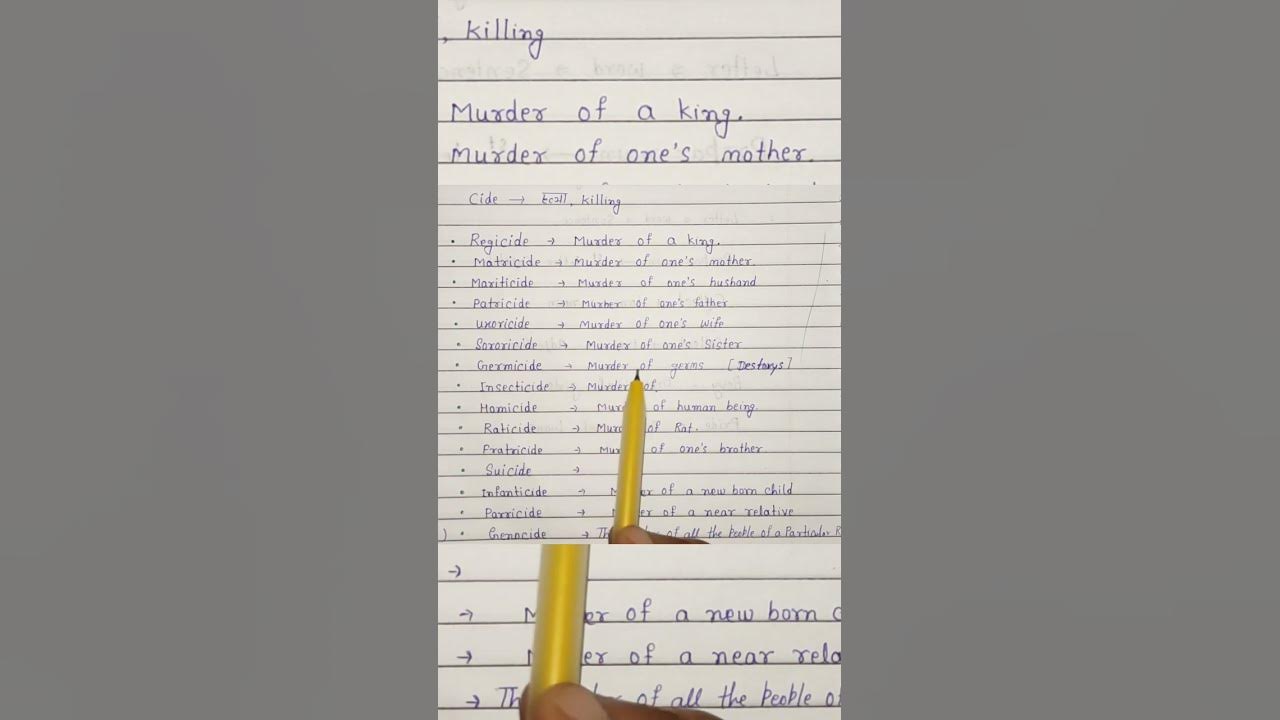 , killing
Murder of a king.
Murder of one's mother.
Cide → हत्या, killing
• Regicide → Murder of a king.
• Matricide → Murder of one's mother.
• Mariticide → Murder of one's husband
• Patricide → Murher of one's father
• uxoricide → Murder of one's wife
• Sororicide → Murder of one's Sister
• Germicide → Murder of germs [Destorys]
• Insecticide → Murder of.
• Homicide → Mur of human being.
• Raticide → Mur of Rat.
• Pratricide → Mu of one's brother.
• Suicide →
• Infanticide → M er of a new born child
• Parricide → er of a near relative
) • Genocide → Th of all the People of a Particular R
→
→ M er of a new born c
→ er of a near rela
→ Th of all the People of